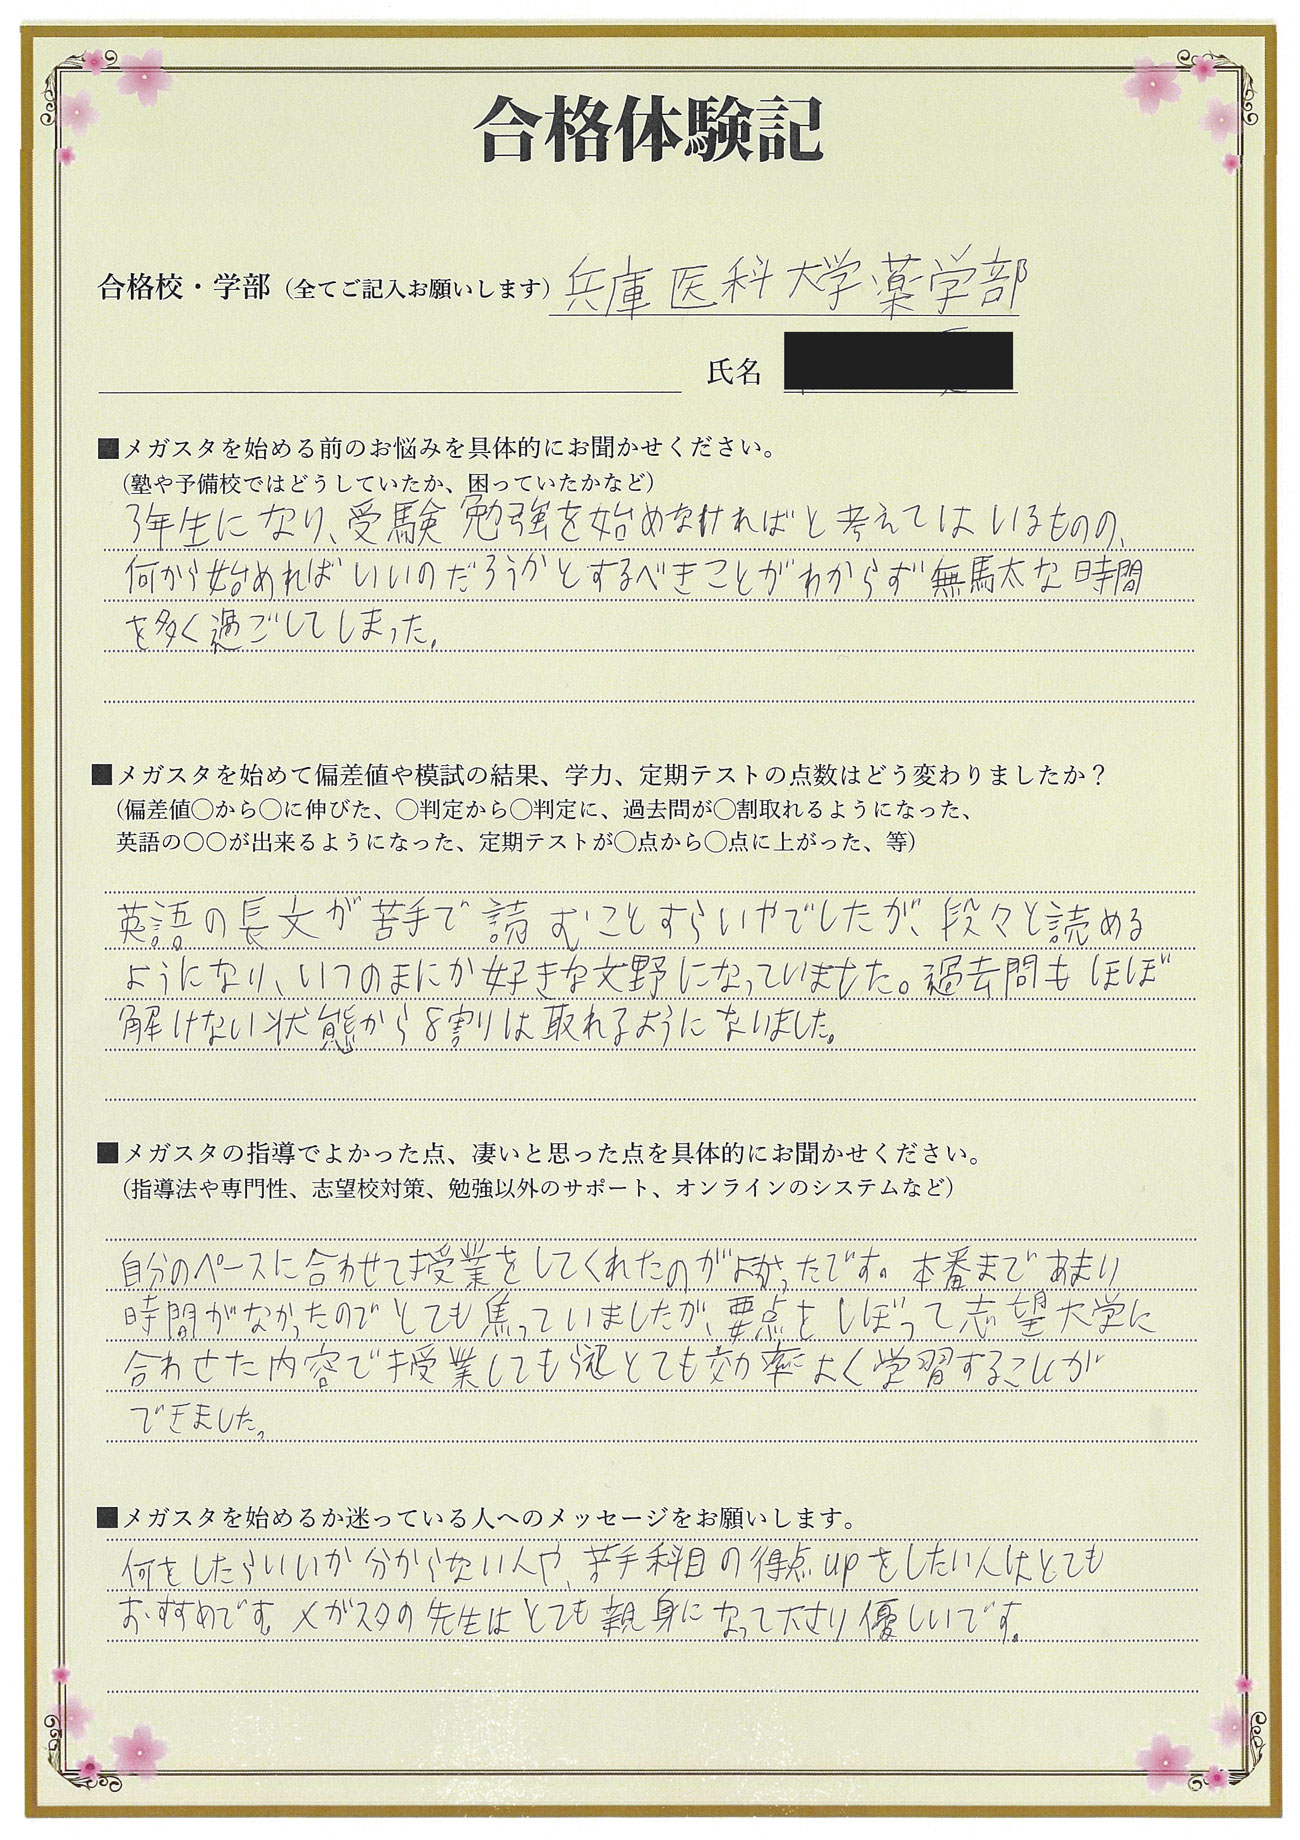 合格体験記
合格校・学部（全てご記入お願いします）兵庫医科大学薬学部
氏名
■メガスタを始める前のお悩みを具体的にお聞かせください。
（塾や予備校ではどうしていたか、困っていたかなど）
3年生になり、受験勉強を始めなければと考えてはいるものの、
何から始めればいいのだろうかとするべきことがわからず無馬太な時間
を多く過ごしてしまった。
■メガスタを始めて偏差値や模試の結果、学力、定期テストの点数はどう変わりましたか？
（偏差値〇から〇に伸びた、〇判定から〇判定に、過去問が〇割取れるようになった、
英語の〇〇が出来るようになった、定期テストが〇点から〇点に上がった、等）
英語の長文が苦手で読むことすらいやでしたが、段々と読める
ようになり、いつのまにか好きな文野になっていました。過去問もほぼ
解けない状態から8割りは取れるようになりました。
■メガスタの指導でよかった点、凄いと思った点を具体的にお聞かせください。
（指導法や専門性、志望校対策、勉強以外のサポート、オンラインのシステムなど）
自分のペースに合わせて授業をしてくれたのがよかったです。本番まであまり
時間がなかったのでとても焦っていましたが、要点をしぼって志望大学に
合わせた内容で授業してもらえとても効率よく学習することが
できました。
■メガスタを始めるか迷っている人へのメッセージをお願いします。
何をしたらいいか分からない人や、苦手科目の得点upをしたい人はとても
おすすめです。メガスタの先生はとても親身になって下さり優しいです。